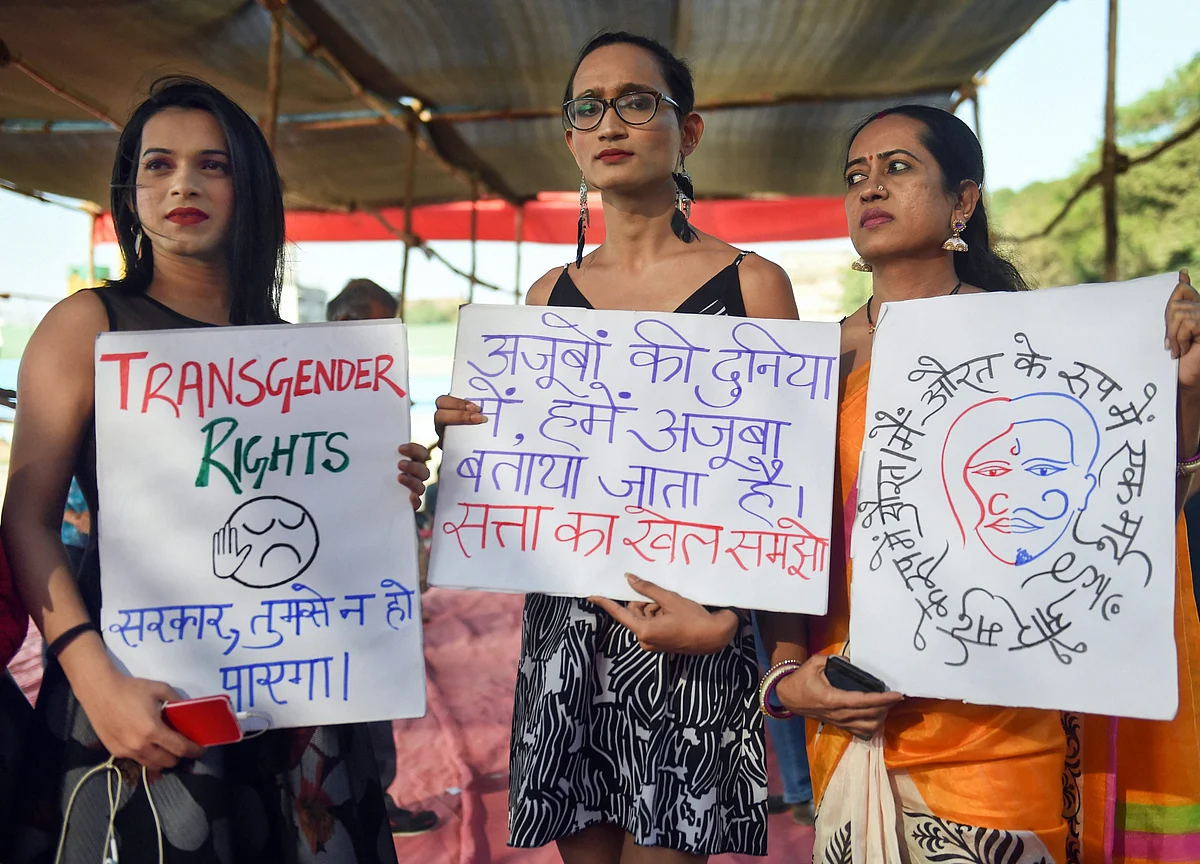 TRANSGENDER
RIGHTS
सरकार, तुमसे न हो
पाएगा।
अजूबों की दुनिया
में, हमें अजूबा
बताया जाता है।
सत्ता का खेल समझो
मैं औरत के रूप में एक मर्द